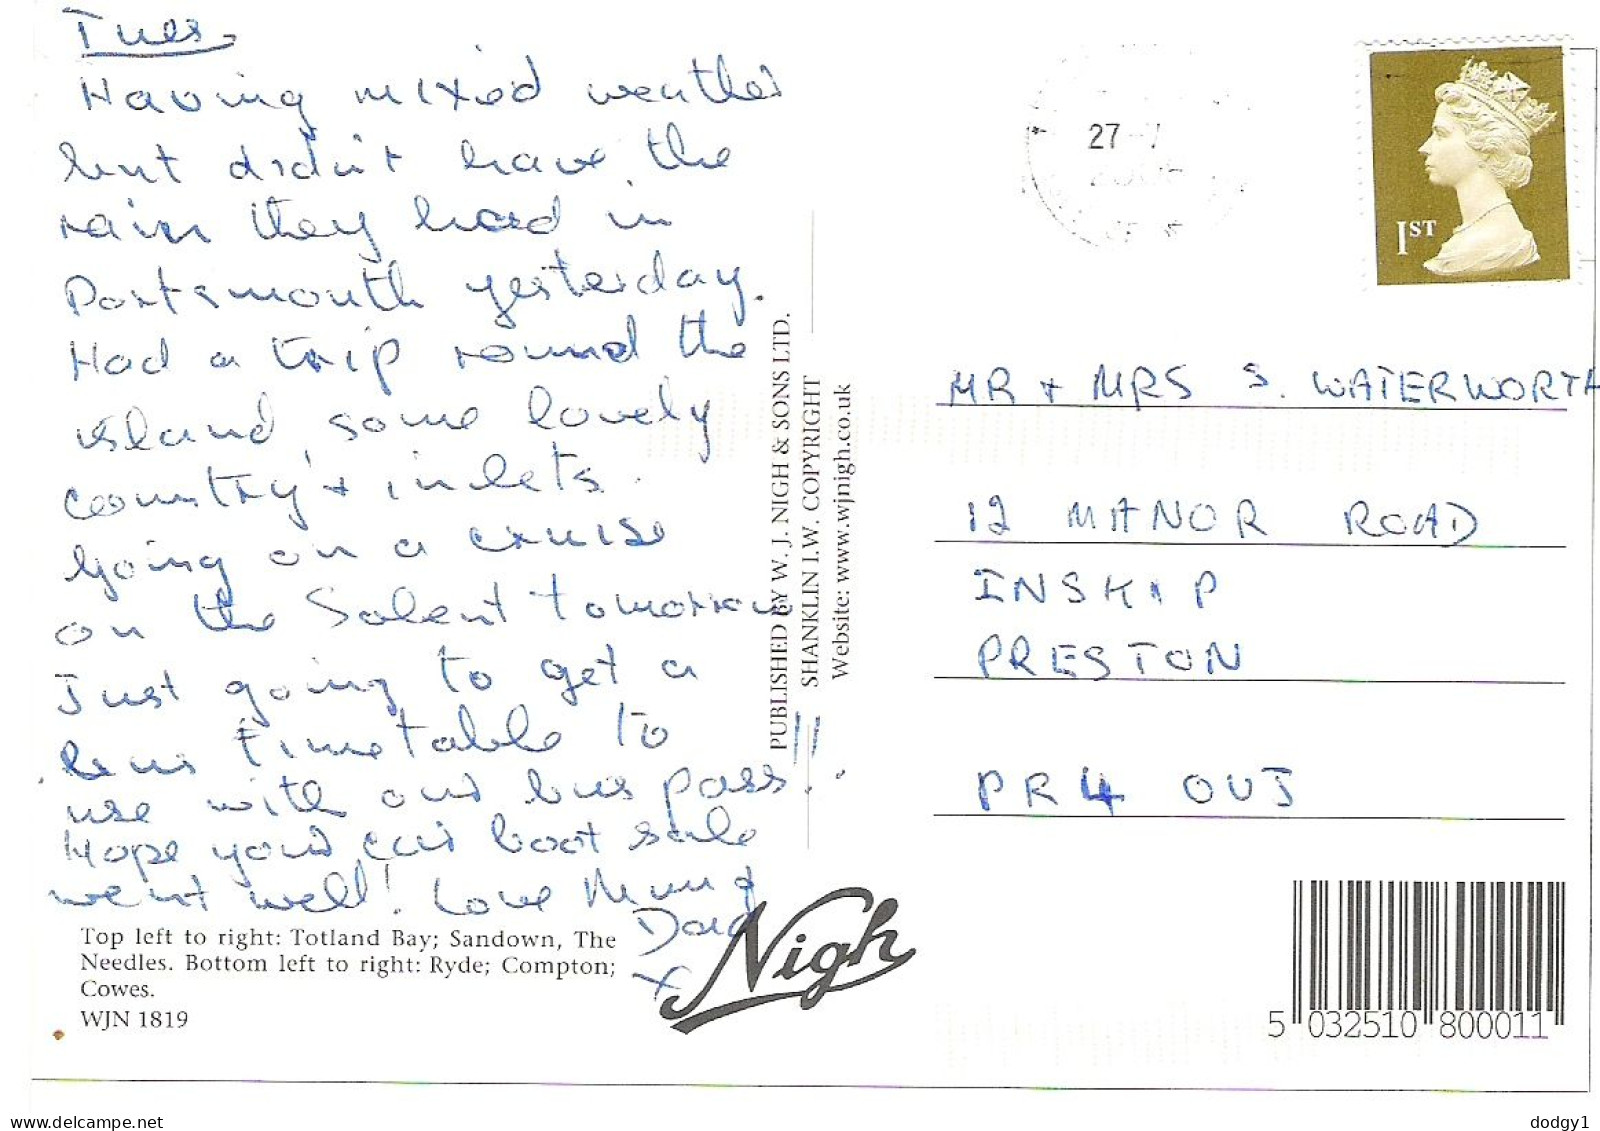 Tues
Having mixed weather
but didn't have the
rain they had in
Portsmouth yesterday.
Had a trip round the
island, some lovely
country & inlets.
Going on a cruise
on the Solent tomorrow
Just going to get a
bus timetable to
use with our bus pass!!
Hope your car boot sale
went well! Love Mum &
Dad
X
Top left to right: Totland Bay; Sandown, The
Needles. Bottom left to right: Ryde; Compton;
Cowes.
WJN 1819
PUBLISHED BY W. J. NIGH & SONS LTD.
SHANKLIN I.W. COPYRIGHT
Website: www.wjnigh.co.uk
Nigh
27-7
1ST
MR + MRS S. WATERWORTH
12 MANOR ROAD
INSKIP
PRESTON
PR4 0UJ
5 032510 800011
dodgy1